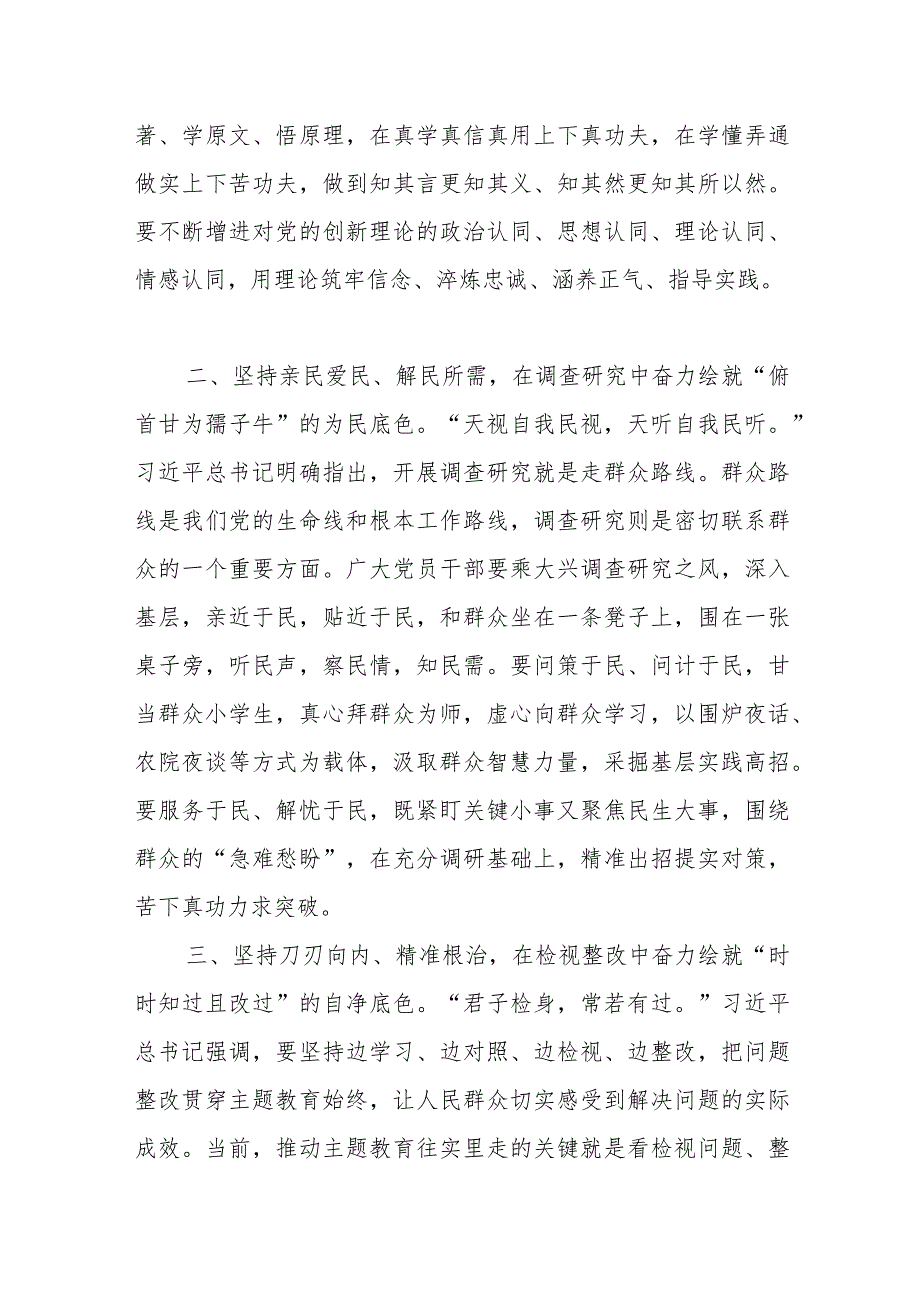 著、学原文、悟原理，在真学真信真用上下真功夫，在学懂弄通
做实上下苦功夫，做到知其言更知其义、知其然更知其所以然。
要不断增进对党的创新理论的政治认同、思想认同、理论认同、
情感认同，用理论筑牢信念、淬炼忠诚、涵养正气、指导实践。
二、坚持亲民爱民、解民所需，在调查研究中奋力绘就“俯
首甘为孺子牛”的为民底色。“天视自我民视，天听自我民听。”
习近平总书记明确指出，开展调查研究就是走群众路线。群众路
线是我们党的生命线和根本工作路线，调查研究则是密切联系群
众的一个重要方面。广大党员干部要乘大兴调查研究之风，深入
基层，亲近于民，贴近于民，和群众坐在一条凳子上，围在一张
桌子旁，听民声，察民情，知民需。要问策于民、问计于民，甘
当群众小学生，真心拜群众为师，虚心向群众学习，以围炉夜话、
农院夜谈等方式为载体，汲取群众智慧力量，采掘基层实践高招。
要服务于民、解忧于民，既紧盯关键小事又聚焦民生大事，围绕
群众的“急难愁盼”，在充分调研基础上，精准出招提实对策，
苦下真功力求突破。
三、坚持刀刃向内、精准根治，在检视整改中奋力绘就“时
时知过且改过”的自净底色。“君子检身，常若有过。”习近平
总书记强调，要坚持边学习、边对照、边检视、边整改，把问题
整改贯穿主题教育始终，让人民群众切实感受到解决问题的实际
成效。当前，推动主题教育往实里走的关键就是看检视问题、整